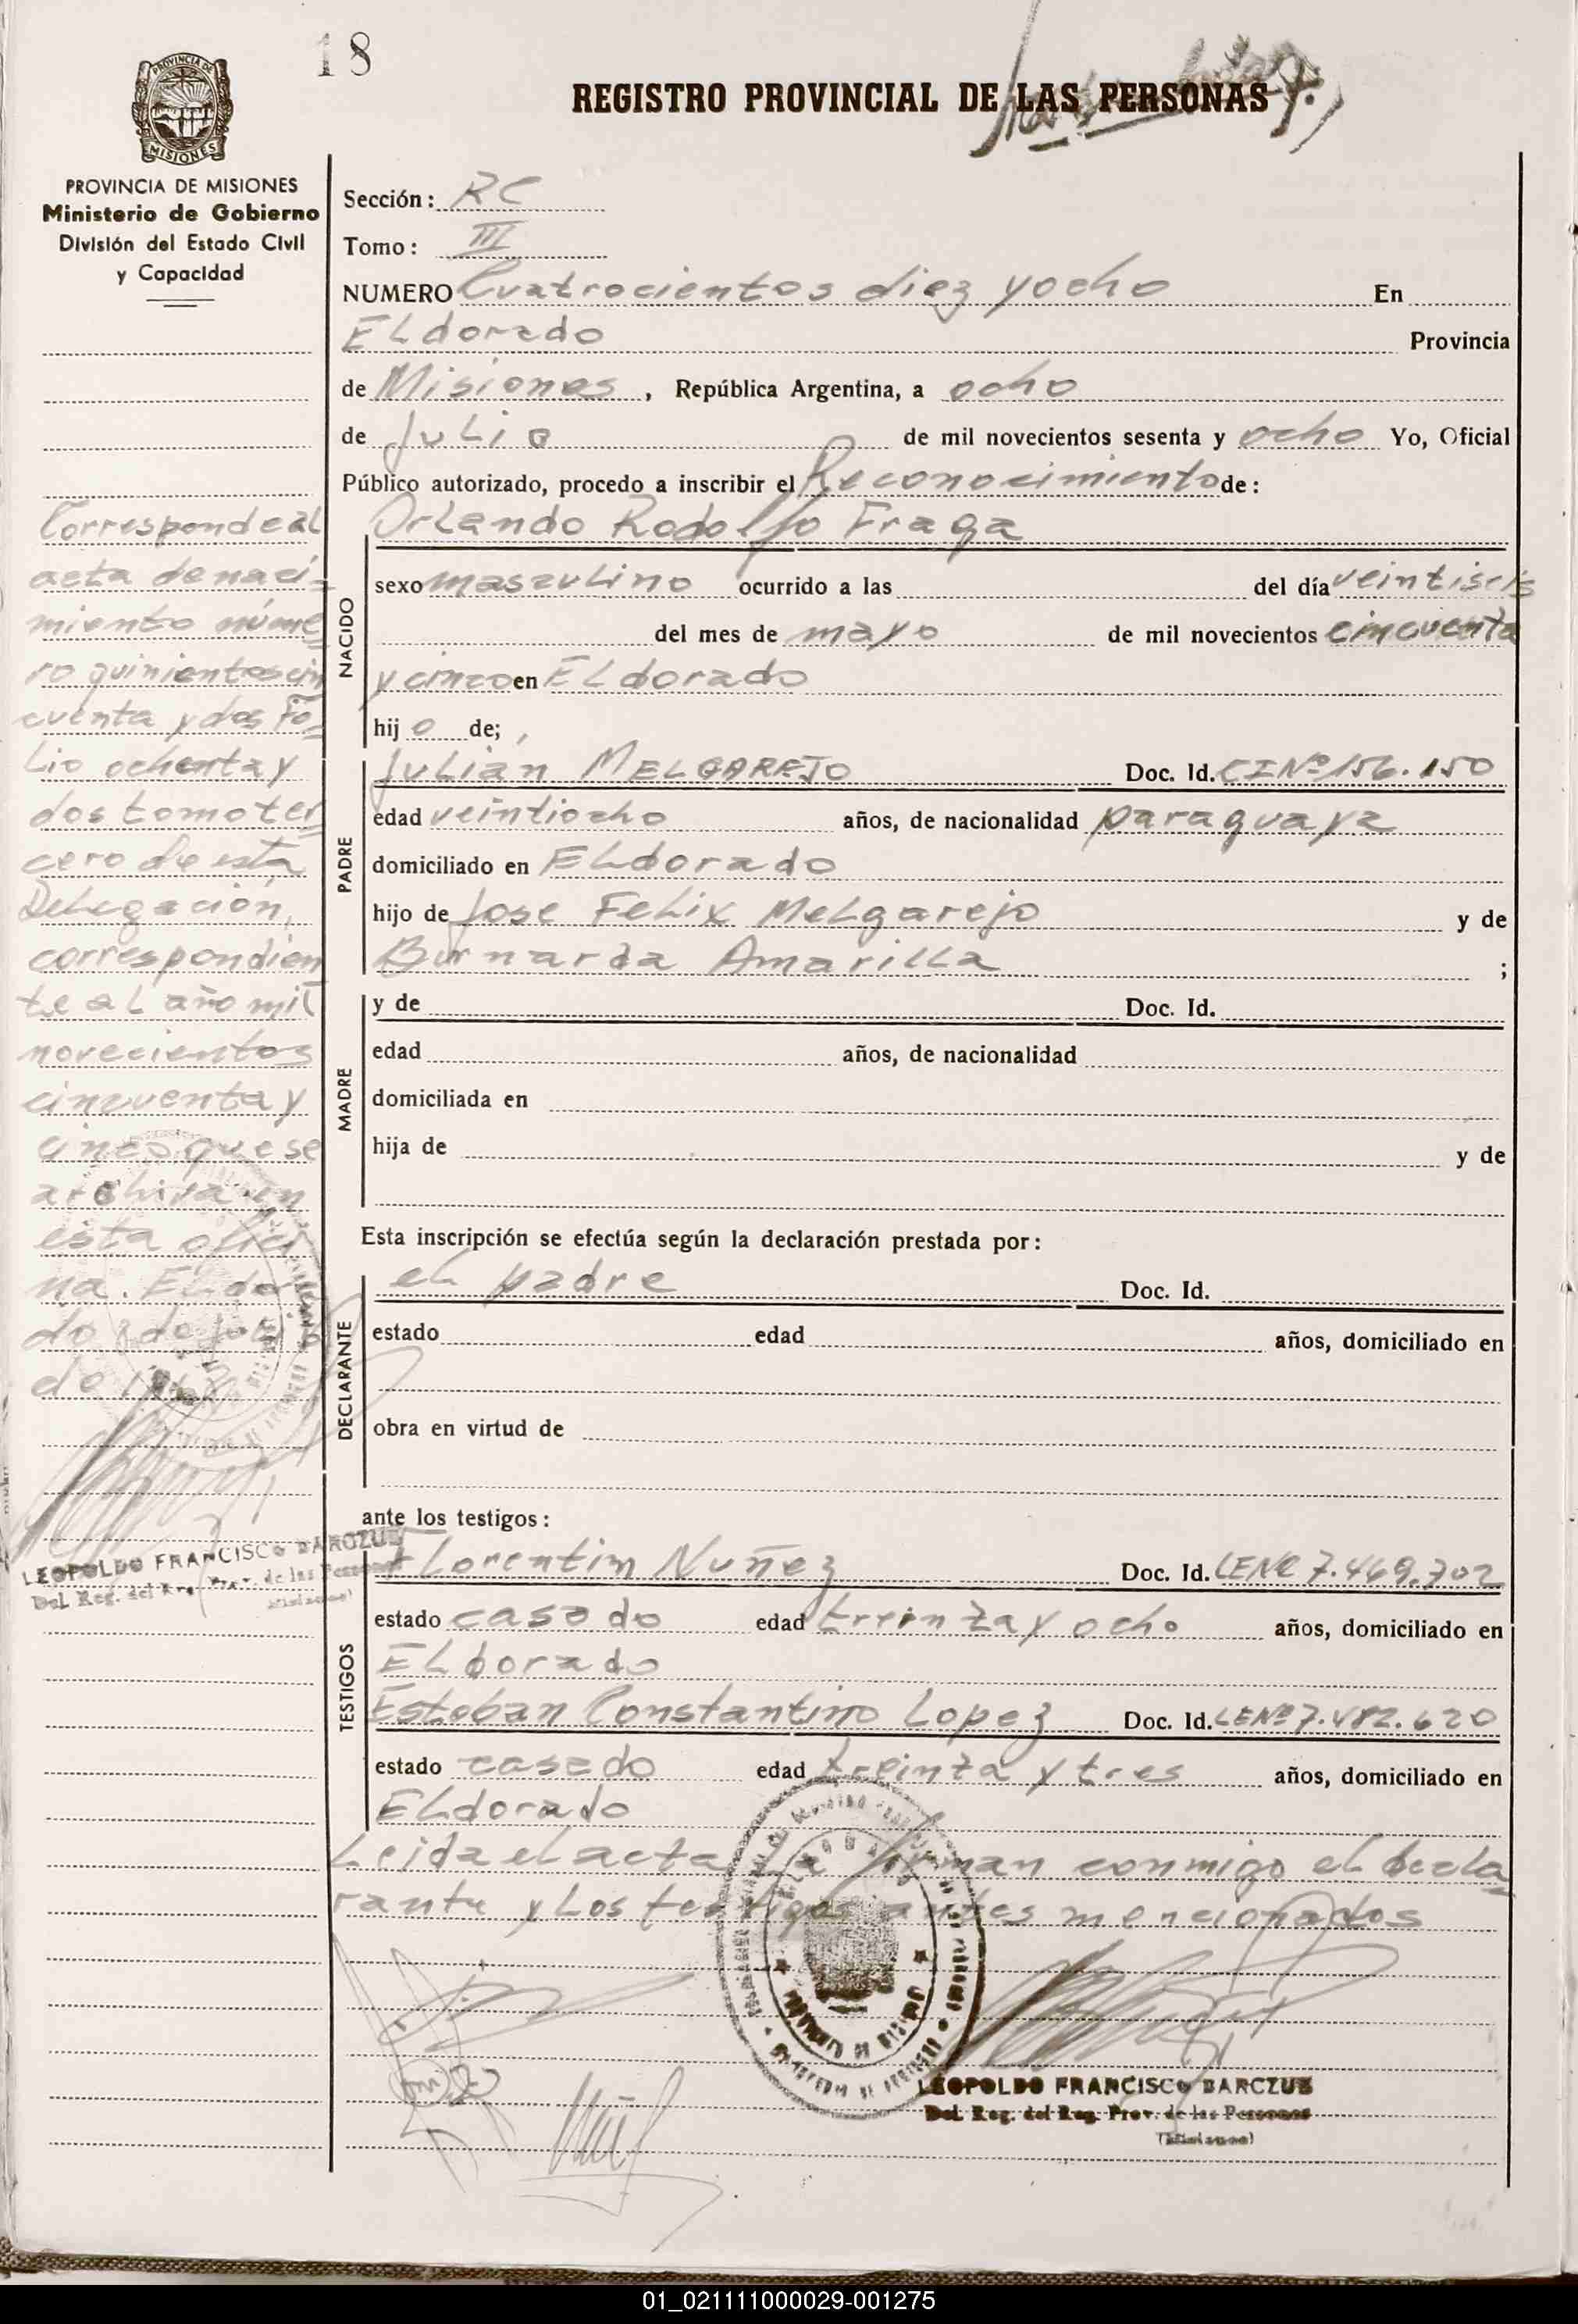 18
REGISTRO PROVINCIAL DE LAS PERSONAS
PROVINCIA DE MISIONES
Ministerio de Gobierno
División del Estado Civil
y Capacidad
Sección: RC
Tomo: III
NUMERO Cuatrocientos diez y ocho En
ELdorado Provincia
de Misiones, República Argentina, a ocho
de Julio de mil novecientos sesenta y ocho Yo, Oficial
Público autorizado, procedo a inscribir el Reconocimiento de:
NACIDO
Orlando Rodolfo Fraga
sexo masculino ocurrido a las del día veintiseis
del mes de mayo de mil novecientos cincuenta
y cinco en ELdorado
hijo de;
PADRE
Julián MELGAREJO Doc. Id. CI Nº 156.150
edad veintiocho años, de nacionalidad paraguaya
domiciliado en ELdorado
hijo de Jose Felix Melgarejo y de
Bernarda Amarilla ;
MADRE
y de Doc. Id.
edad años, de nacionalidad
domiciliada en
hija de y de
Esta inscripción se efectúa según la declaración prestada por:
DECLARANTE
el padre Doc. Id.
estado edad años, domiciliado en
obra en virtud de
ante los testigos:
TESTIGOS
Florentin Nuñez Doc. Id. LE Nº 7.469.702
estado casado edad treinta y ocho años, domiciliado en
ELdorado
Esteban Constantino Lopez Doc. Id. LE Nº 7.482.620
estado casado edad treinta y tres años, domiciliado en
ELdorado
Leida el acta la firman conmigo el decla-
rante y los testigos antes mencionados
LEOPOLDO FRANCISCO BARCZUK
Del. Reg. del Reg. Prov. de las Personas
(Misiones)
Corresponde al
acta de naci-
miento núme-
ro quinientos cin
cuenta y dos Fo-
lio ochenta y
dos tomo ter-
cero de esta
Delegación,
correspondien
te al año mil
novecientos
cincuenta y
cinco que se
archiva en
esta ofici
na. Eldora
do 8 de julio
de 1968
LEOPOLDO FRANCISCO BARCZUK
Del. Reg. del Reg. Prov. de las Personas
(Misiones)
01_021111000029-001275